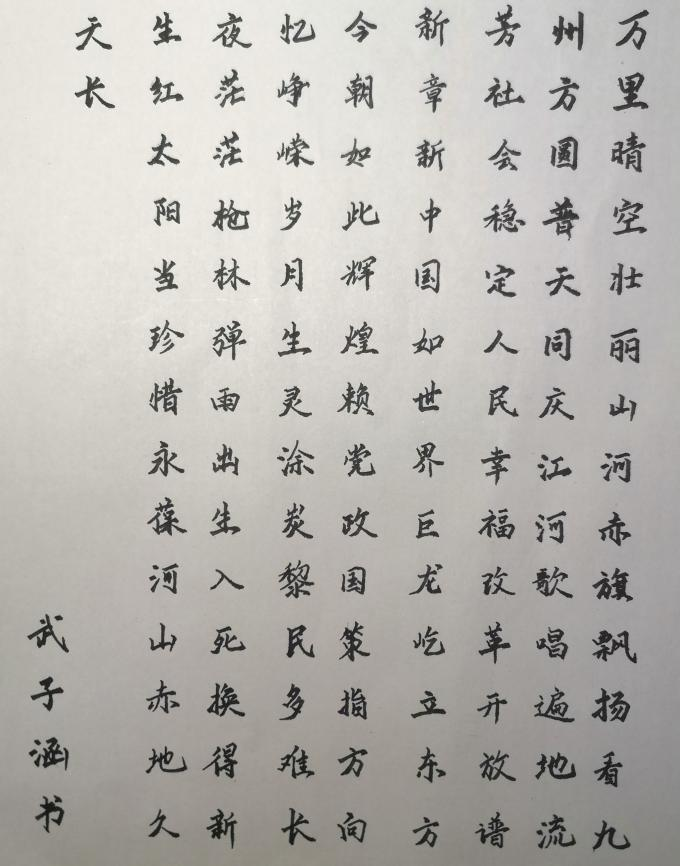 万里晴空壮丽山河赤旗飘扬看九
州方圆普天同庆江河歌唱遍地流
芳社会稳定人民幸福改革开放谱
新章新中国如世界巨龙屹立东方
今朝如此辉煌赖党政国策指方向
忆峥嵘岁月生灵涂炭黎民多难长
夜茫茫枪林弹雨出生入死换得新
生红太阳当珍惜永葆河山赤地久
天长
武子涵书